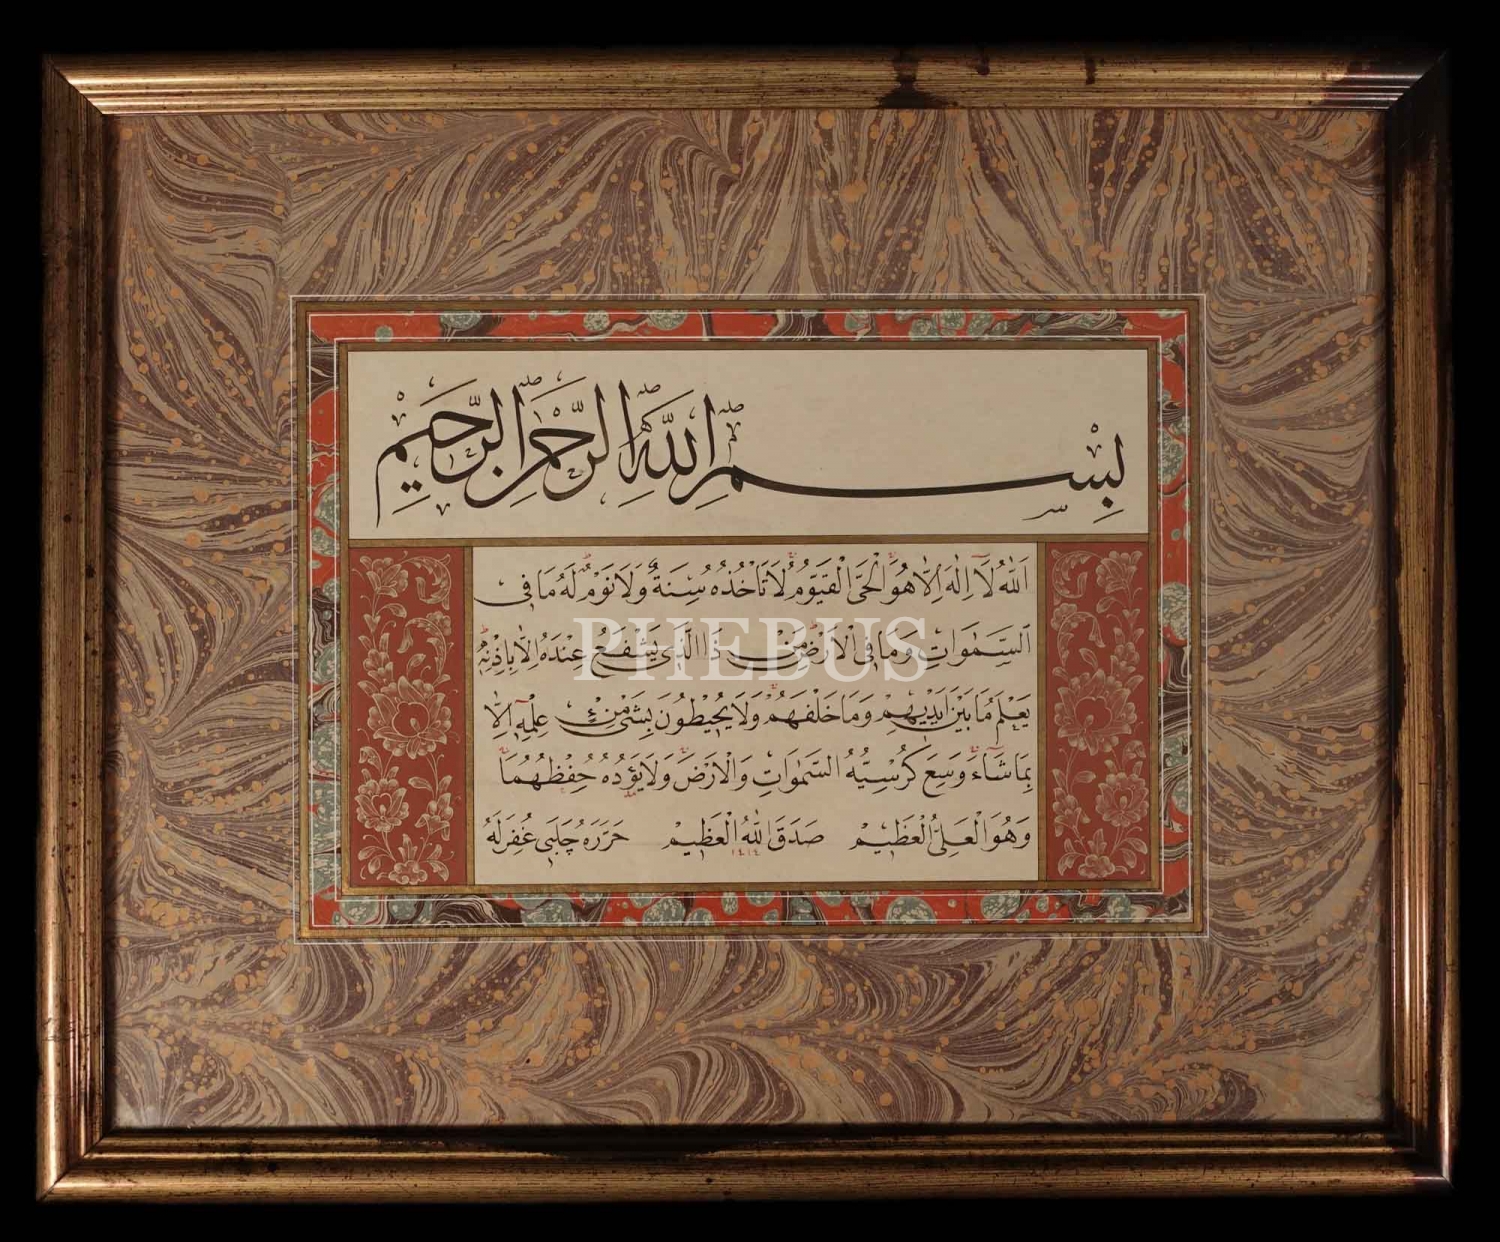 بِسْمِ اللّٰهِ الرَّحْمٰنِ الرَّحِيمِ
اَللّٰهُ لَا اِلٰهَ اِلَّا هُوَ اَلْحَىُّ الْقَيُّومُ لَا تَأْخُذُهُ سِنَةٌ وَلَا نَوْمٌ لَهُ مَا فِى
السَّمٰوَاتِ وَمَا فِى الْاَرْضِ مَنْ ذَا الَّذِى يَشْفَعُ عِنْدَهُ اِلَّا بِاِذْنِهِ
يَعْلَمُ مَا بَيْنَ اَيْدِيهِمْ وَمَا خَلْفَهُمْ وَلَا يُحِيطُونَ بِشَىْءٍ مِنْ عِلْمِهِ اِلَّا
بِمَا شَاءَ وَسِعَ كُرْسِيُّهُ السَّمٰوَاتِ وَالْاَرْضَ وَلَا يَؤُدُهُ حِفْظُهُمَا
وَهُوَ الْعَلِىُّ الْعَظِيمُ صَدَقَ اللّٰهُ الْعَظِيمُ حَرَّرَهُ چَلَبِى غُفِرَ لَهُ
١٤١٤
PHEBUS